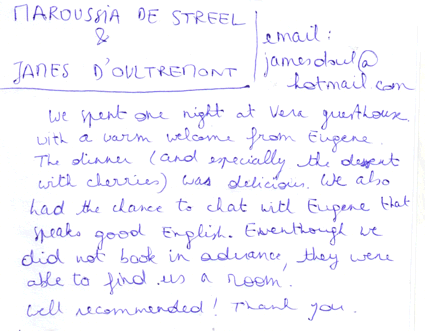 MAROUSSIA DE STREEL
&
JAMES D'OULTREMONT
email:
jamesdoul@
hotmail com
We spent one night at Vera guesthouse.
with a warm welcome from Eugene.
The dinner (and especially the desert
with cherries) was delicious. We also
had the chance to chat with Eugene that
speaks good English. Eventhough we
did not book in advance, they were
able to find us a room.
Well recommended! Thank you.